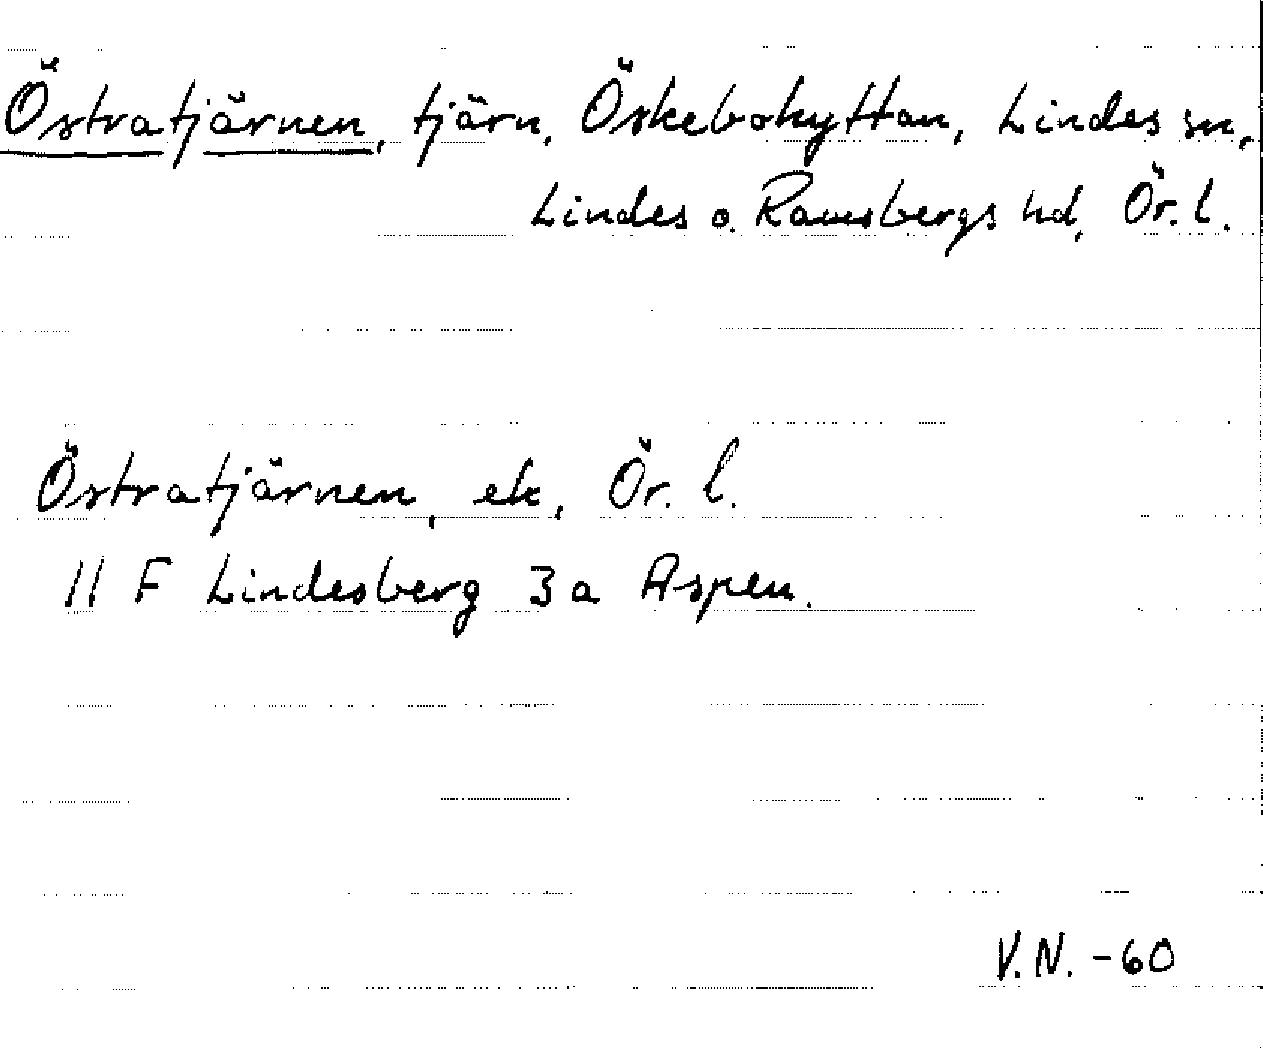 Östratjärnen, tjärn, Öskebohyttan, Lindes sn,
Lindes o. Ramsbergs hd, Ör. l.
Östratjärnen, ek, Ör. l.
11 F Lindesberg 3a Aspen.
V.N. -60